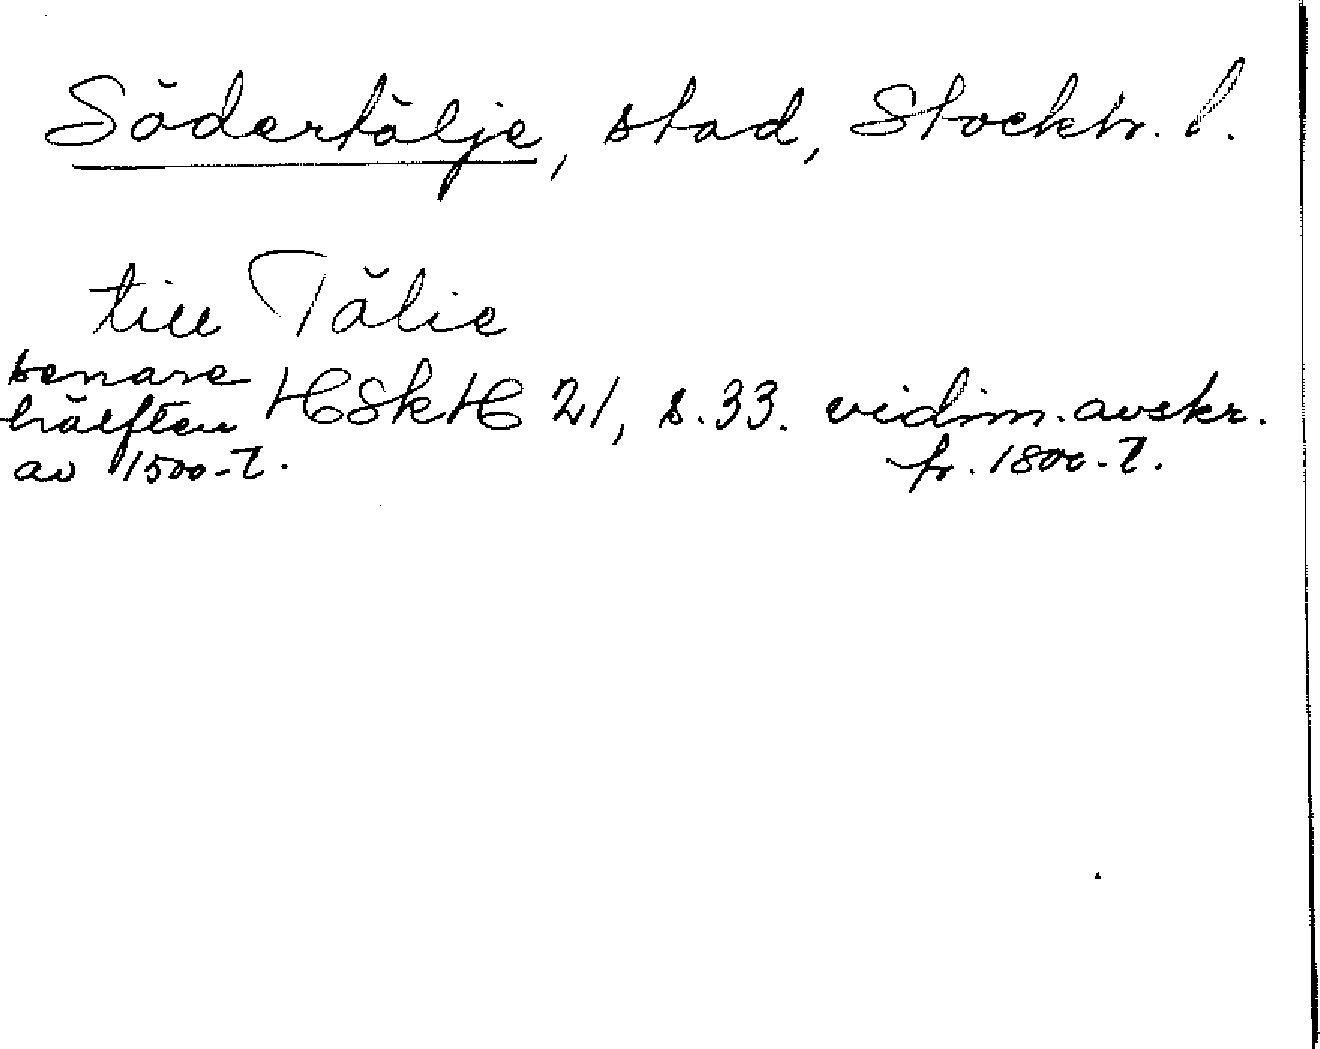 Södertälje, stad, Stockh. l.
till Tälie
senare hälften av 1500-t.
HSkH 21, s. 33. vidim. avskr. fr. 1800-t.